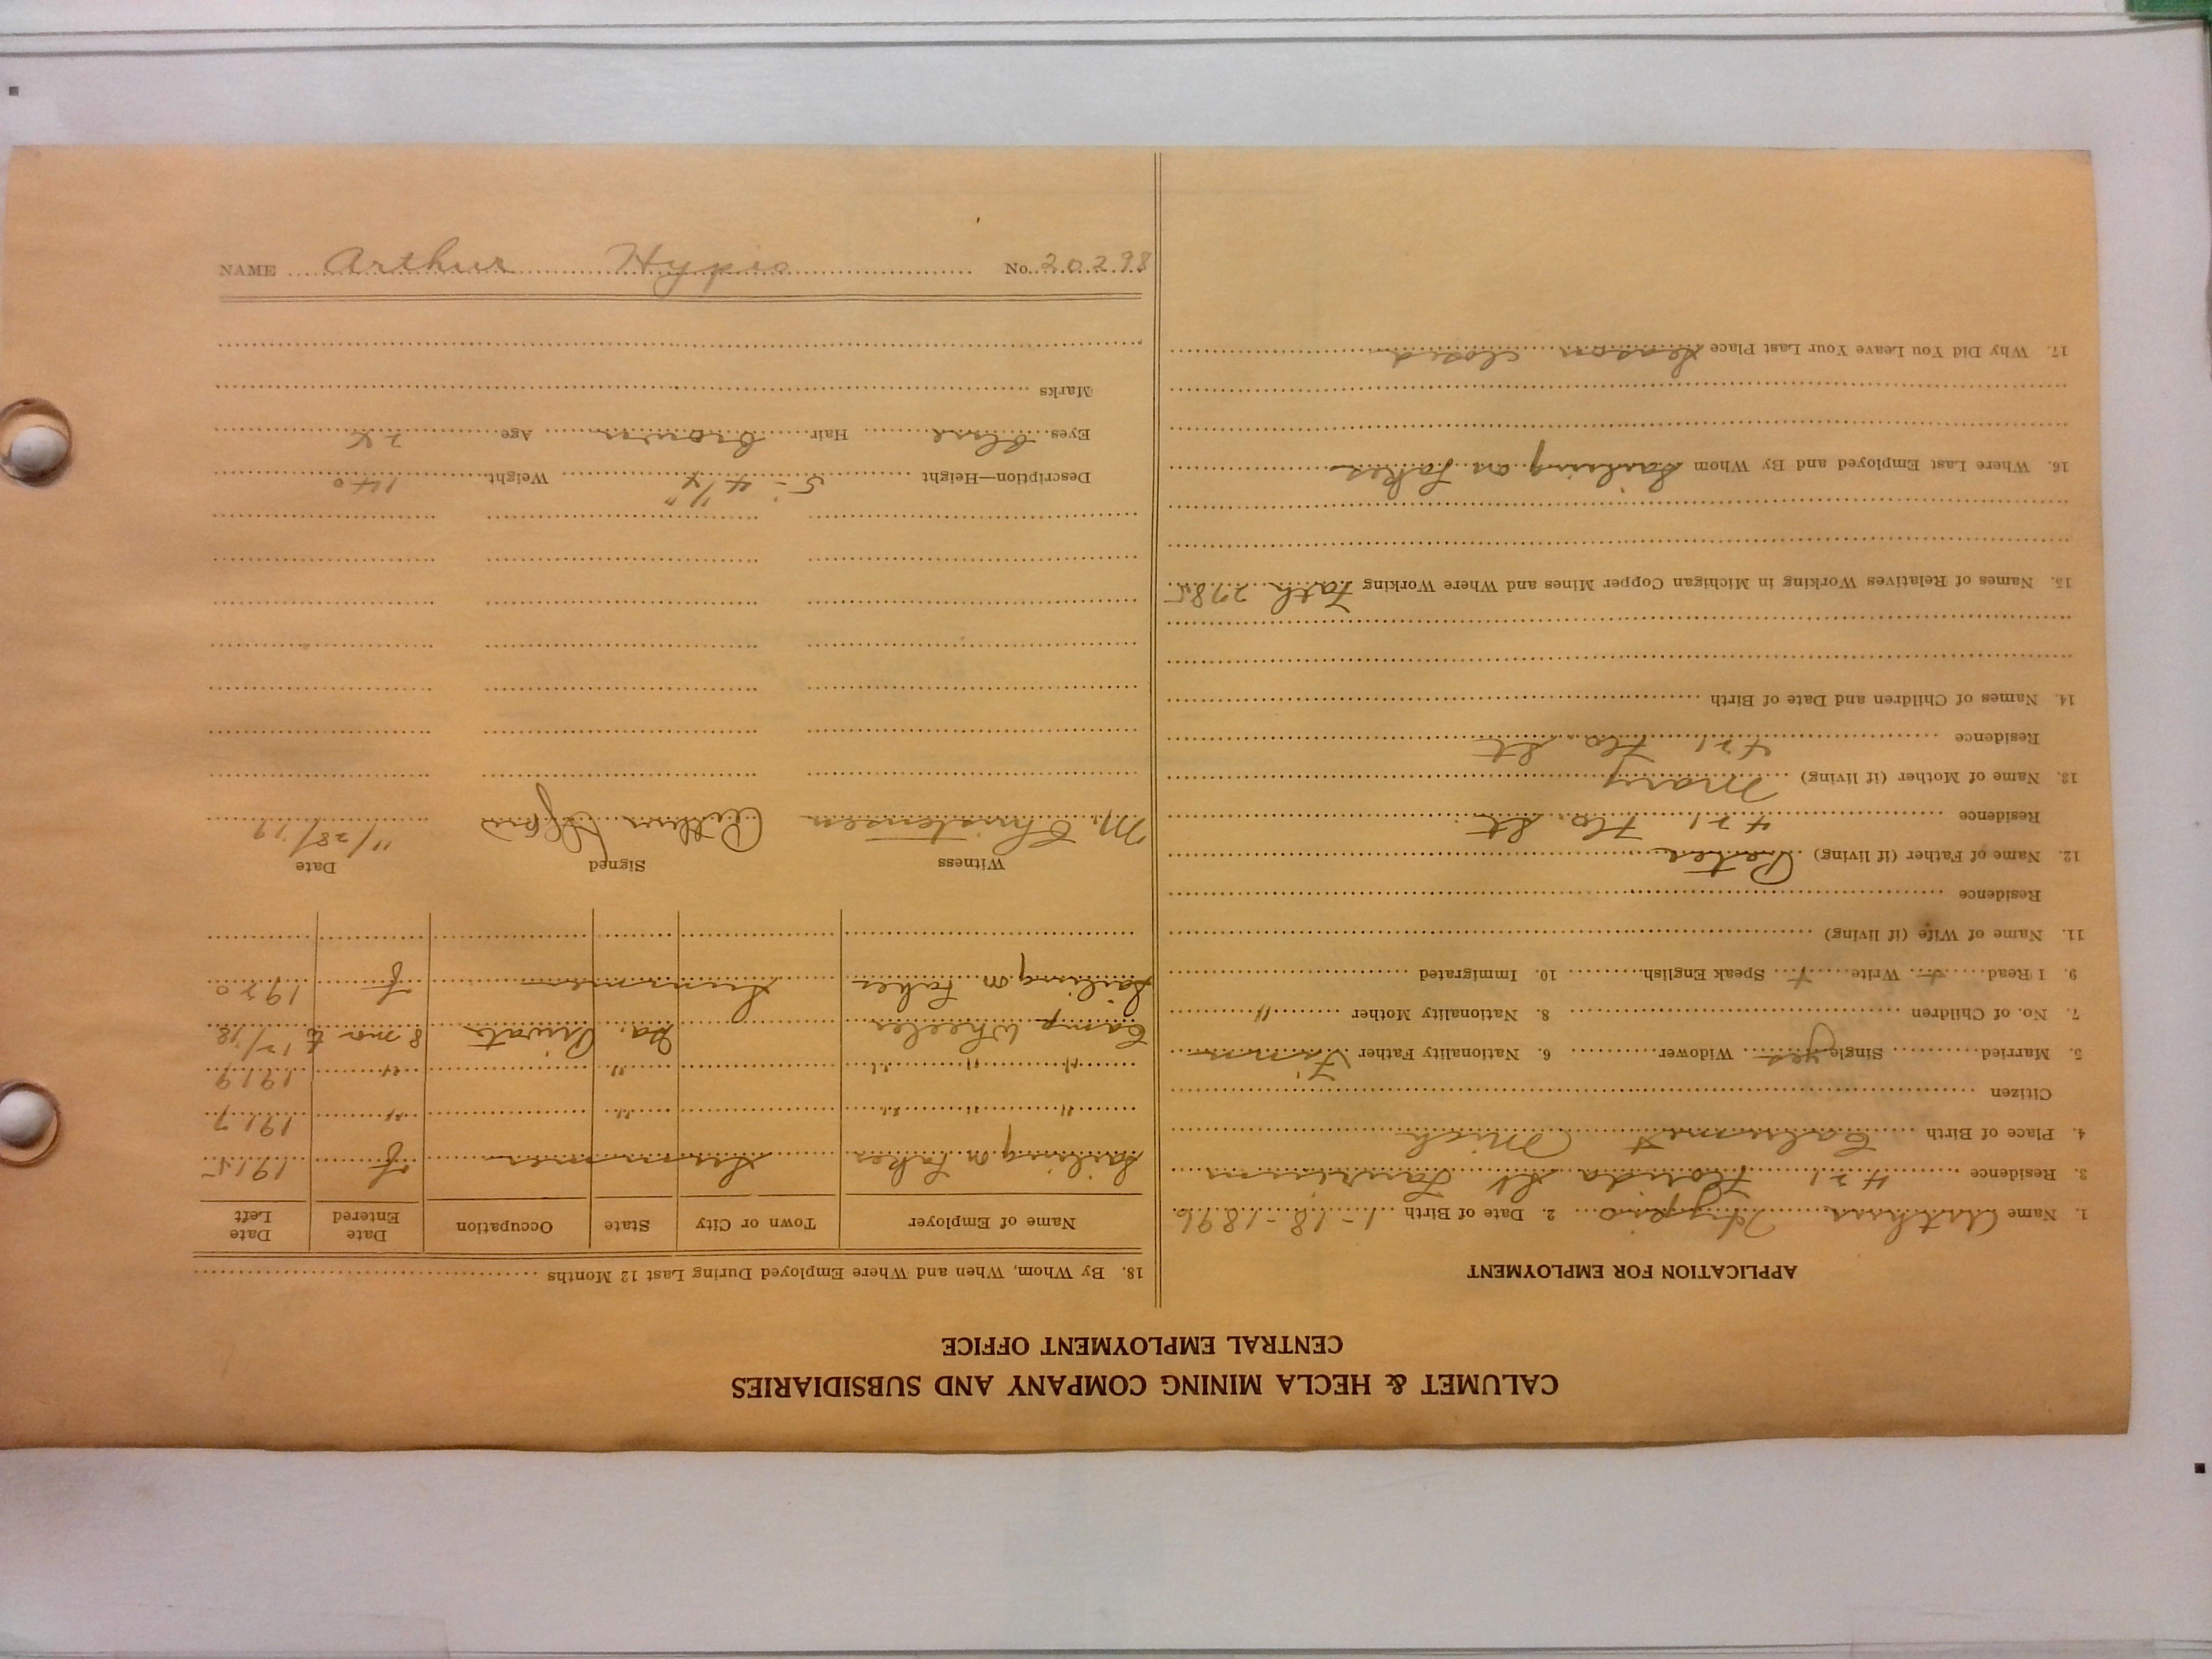 CALUMET & HECLA MINING COMPANY AND SUBSIDIARIES
CENTRAL EMPLOYMENT OFFICE
APPLICATION FOR EMPLOYMENT
1. Name Arthur Hypio 2. Date of Birth 1-18-1896
3. Residence 421 Florida St. Laurium
4. Place of Birth Calumet Mich
Citizen
5. Married Single yes Widower 6. Nationality Father Finn
7. No. of Children 8. Nationality Mother "
9. I Read + Write + Speak English 10. Immigrated
11. Name of Wife (if living)
Residence
12. Name of Father (if living) Peter
Residence 421 Flo. St
13. Name of Mother (if living) Mary
Residence 421 Flo. St
14. Names of Children and Date of Birth
15. Names of Relatives Working in Michigan Copper Mines and Where Working Fath 2785
16. Where Last Employed and By Whom Sailing on Lakes
17. Why Did You Leave Your Last Place Season closed
18. By Whom, When and Where Employed During Last 12 Months
Name of Employer Town or City State Occupation Date Entered Date Left
Sailing on Lakes Summer 1915
" " " " " 1917
" " " " " 1919
Camp Wheeler Ga. Private 8 mos to 12/18
Sailing on Lakes Summer 1920
Witness Signed Date
M. Christensen Arthur Hypio 11/28/19
Description—Height 5-4 1/4" Weight 140
Eyes Blue Hair brown Age 24
Marks
NAME Arthur Hypio No. 20298